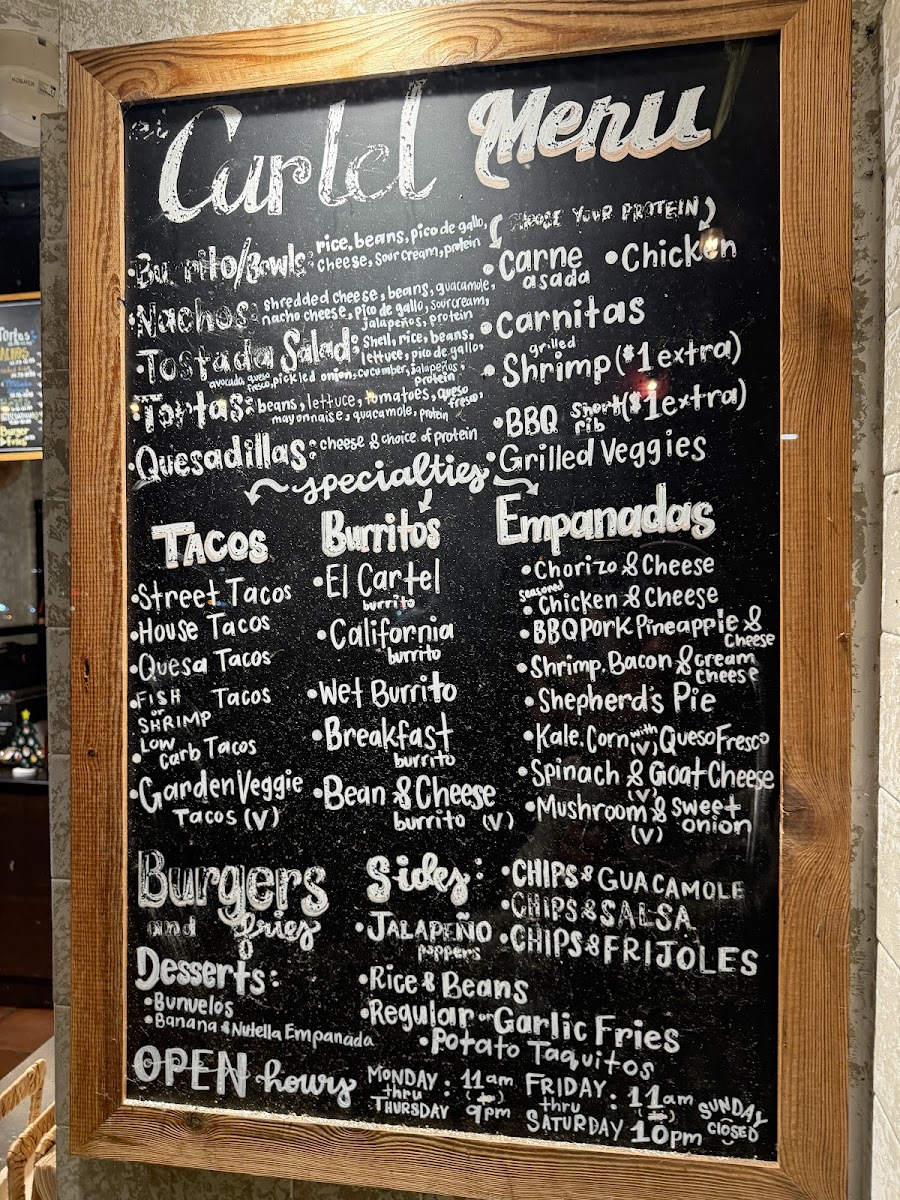 el Cartel Menu
CHOOSE YOUR PROTEIN
•Burrito/Bowls: rice, beans, pico de gallo,
cheese, sour cream, protein
•Nachos: shredded cheese, beans, guacamole,
nacho cheese, pico de gallo, sour cream,
jalapeños, protein
•Tostada Salad: shell, rice, beans,
lettuce, pico de gallo,
avocado, queso fresco, pickled onion, cucumber, jalapeños,
protein
•Tortas: beans, lettuce, tomatoes, queso fresco,
mayonnaise, guacamole, protein
•Quesadillas: cheese & choice of protein
•Carne asada •Chicken
•Carnitas
•grilled Shrimp ($1 extra)
•BBQ short rib ($1 extra)
•Grilled Veggies
specialties
TACOS
•Street Tacos
•House Tacos
•Quesa Tacos
•FISH or SHRIMP Tacos
•LOW Carb Tacos
•Garden Veggie
Tacos (V)
Burritos
•El Cartel
burrito
•California
burrito
•Wet Burrito
•Breakfast
burrito
•Bean & Cheese
burrito (V)
Empanadas
•Chorizo & Cheese
•seasoned Chicken & Cheese
•BBQ Pork Pineapple &
Cheese
•Shrimp, Bacon & cream
cheese
•Shepherd's Pie
•Kale, Corn with Queso Fresco
(V)
•Spinach & Goat Cheese
(V)
•Mushroom & sweet
onion
(V)
Burgers
and fries
Desserts:
•Bunuelos
•Banana & Nutella Empanada
Sides:
•JALAPEÑO
poppers
•CHIPS & GUACAMOLE
•CHIPS & SALSA
•CHIPS & FRIJOLES
•Rice & Beans
•Regular or Garlic Fries
•Potato Taquitos
OPEN hours
MONDAY thru THURSDAY : 11am 9pm
FRIDAY thru SATURDAY : 11am 10pm
SUNDAY CLOSED
Tortas
Burger
& fries